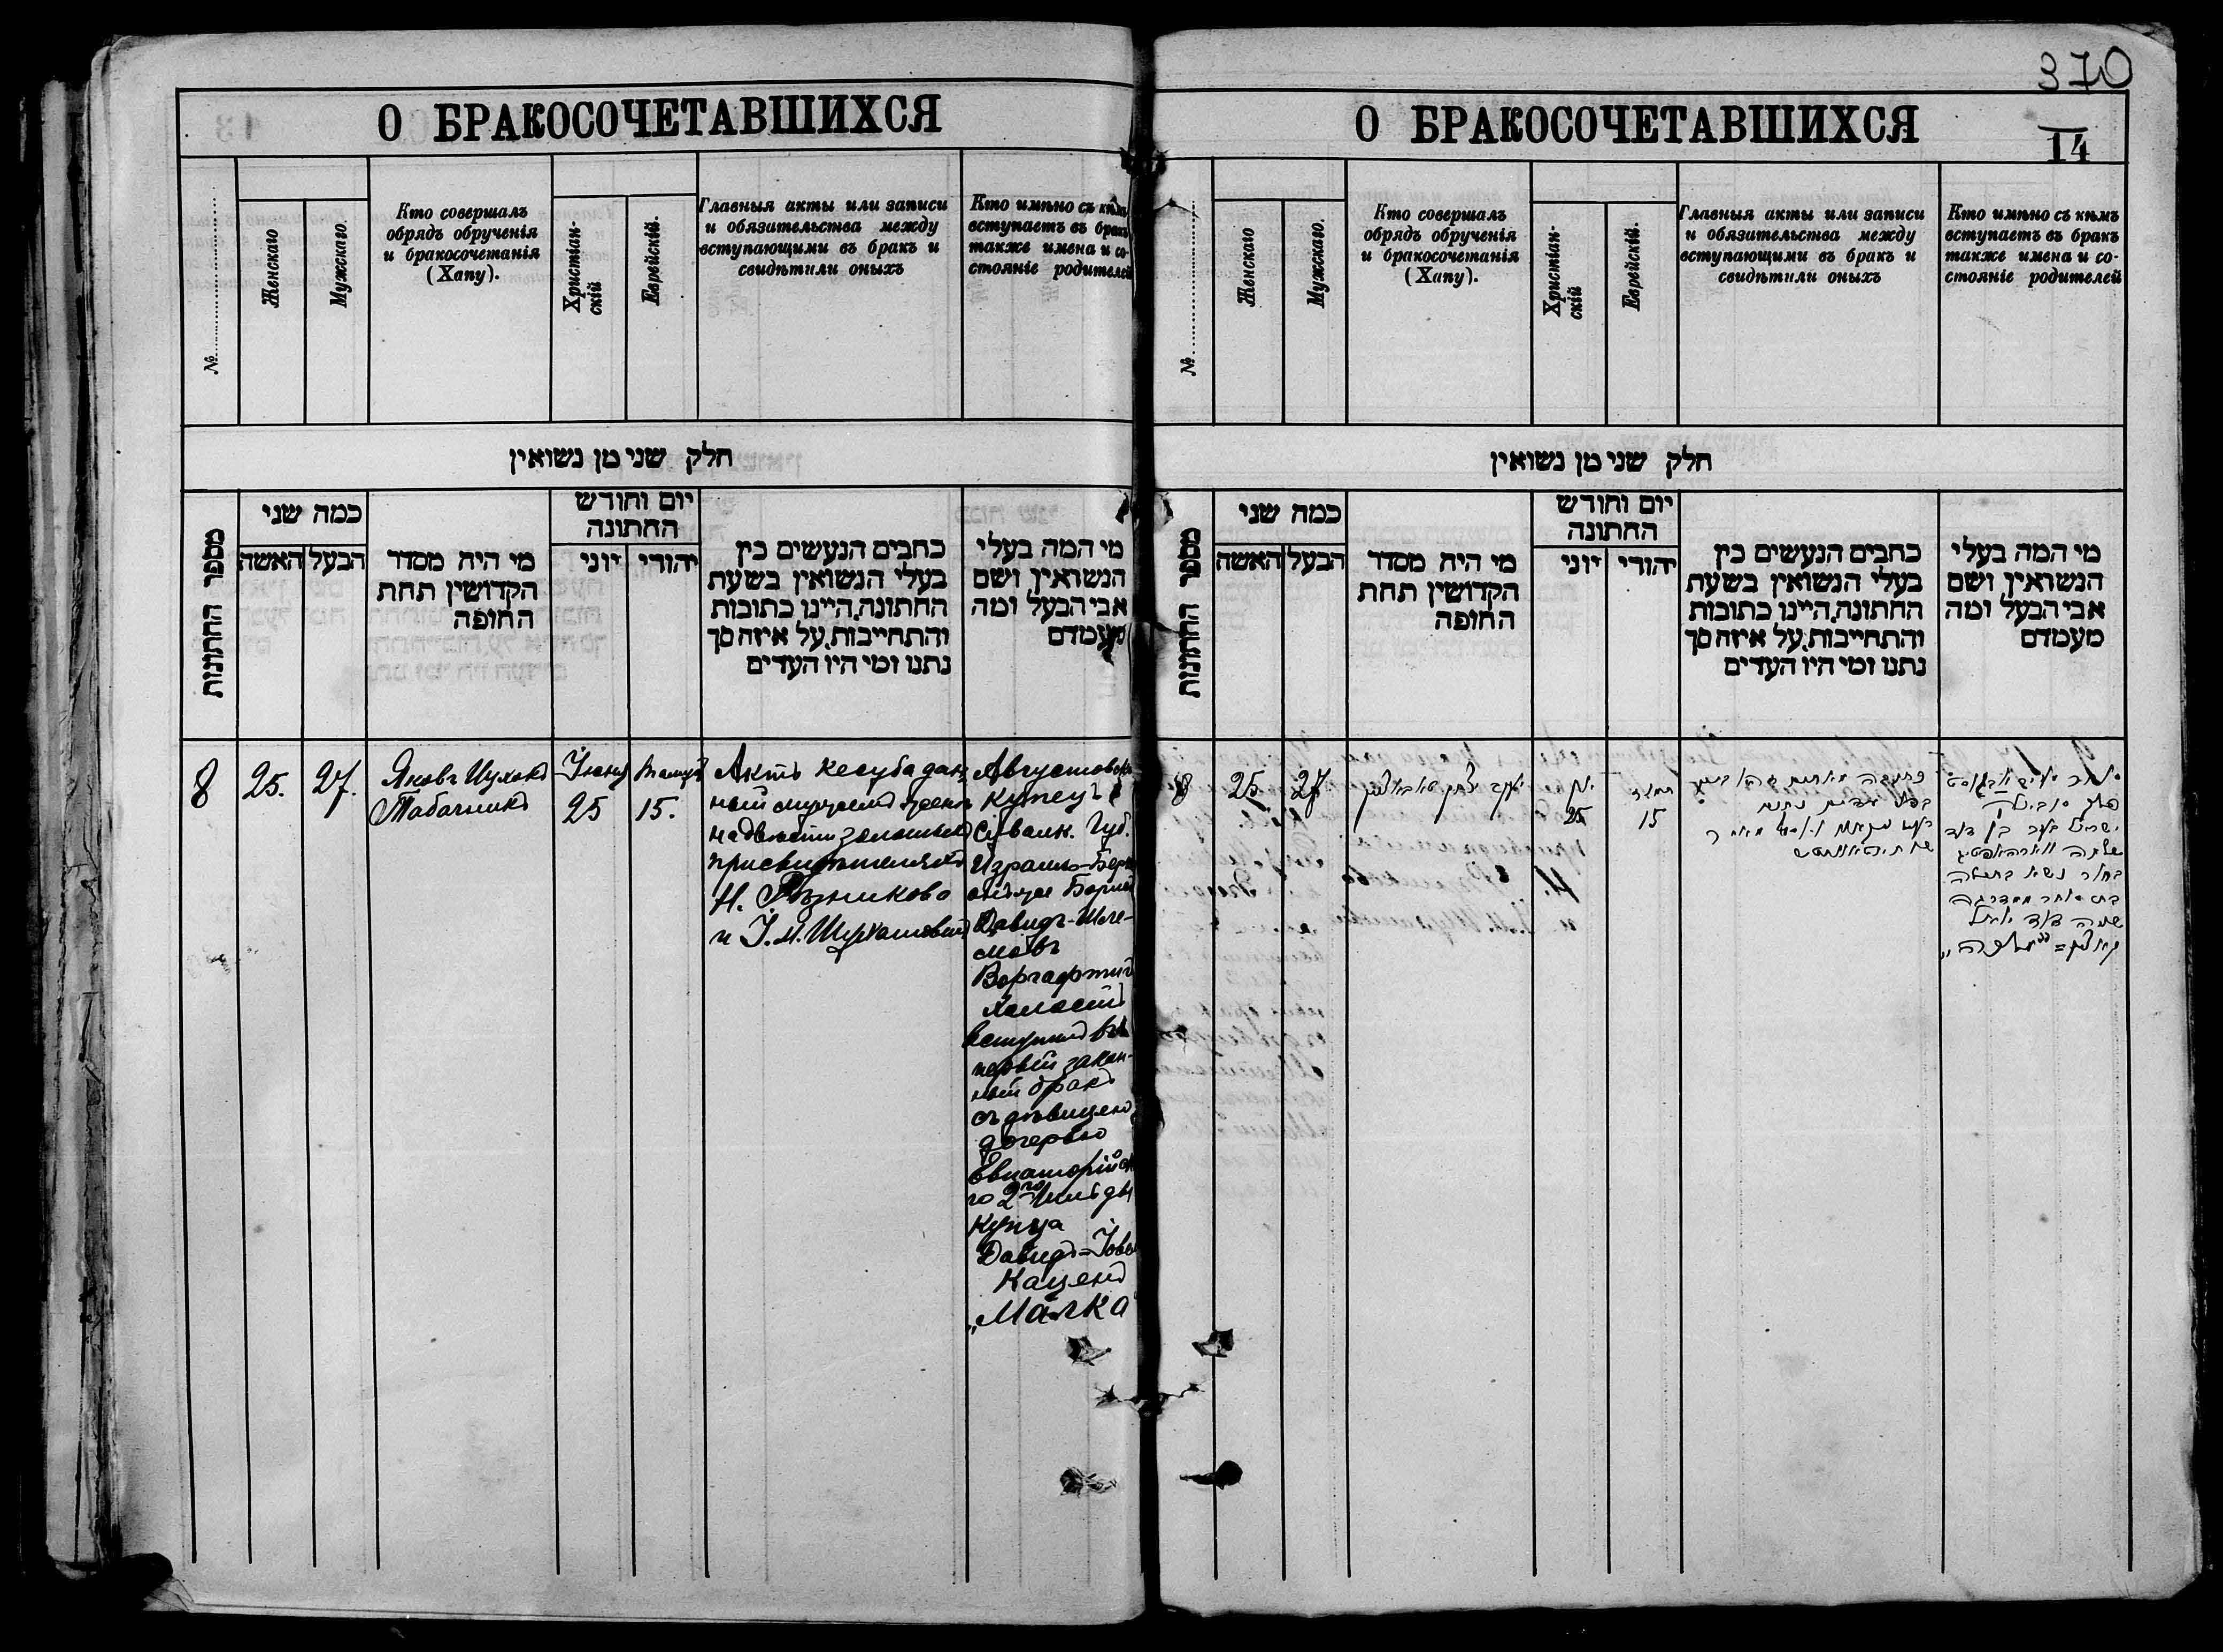 О БРАКОСОЧЕТАВШИХСЯ
№
Женскаго
Мужскаго.
Кто совершалъ
обрядъ обрученія
и бракосочетанія
(Хапу).
Христіан-
скій
Еврейскій.
Главныя акты или записи
и обязательства между
вступающими въ бракъ и
свидѣтили оныхъ
Кто имѣно съ кѣмъ
вступаетъ въ бракъ
также имена и со-
стояніе родителей
חלק שני מן נשואין
מספר החתונות
כמה שני
האשה
הבעל
מי היה מסדר
הקדושין תחת
החופה
יום וחודש
החתונה
יוני
יהודי
כתבים הנעשים בין
בעלי הנשואין בשעת
החתונה, היינו כתובות
והתחייבות, על איזה סך
נתנו ומי היו העדים
מי המה בעלי
הנשואין ושם
אבי הבעל ומה
מעמדם
8
25.
27.
Яковъ Ицхокъ
Табачникъ
Іюня
25
Тамузъ
15.
Актъ кесуба дан
ный мужемъ
надвѣсти золотыхъ
при свидѣтеляхъ
Н. Рѣзниково
и І. М.
Августовскій
купецъ
Сувалк. Губ.
Израиль-Беръ
онъ же Борисъ
Давидъ-Шле-
мовъ
Варгафтигъ
холостъ
вступилъ въ
первый закон-
ный бракъ
съ дѣвицею
дочерью
Евпаторійска
го 2й Гильдіи
купца
Давидъ-Іове
Каценъ
„Малка"
370
О БРАКОСОЧЕТАВШИХСЯ
14
№
Женскаго
Мужскаго.
Кто совершалъ
обрядъ обрученія
и бракосочетанія
(Хапу).
Христіан-
скій
Еврейскій.
Главныя акты или записи
и обязательства между
вступающими въ бракъ и
свидѣтили оныхъ
Кто имѣно съ кѣмъ
вступаетъ въ бракъ
также имена и со-
стояніе родителей
חלק שני מן נשואין
מספר החתונות
כמה שני
האשה
הבעל
מי היה מסדר
הקדושין תחת
החופה
יום וחודש
החתונה
יוני
יהודי
כתבים הנעשים בין
בעלי הנשואין בשעת
החתונה, היינו כתובות
והתחייבות, על איזה סך
נתנו ומי היו העדים
מי המה בעלי
הנשואין ושם
אבי הבעל ומה
מעמדם
8
25
27.
יעקב יצחק טאבאצניק
יוני
25
תמוז
15
סוחר מעיר אבגוסט
פלך סובאלק
ישראל בער בן דוד
שלמה ווארהאפטיג
בחור נשא בתולה
בת סוחר
שמה דוד יואל
קאצין = "מלכה"